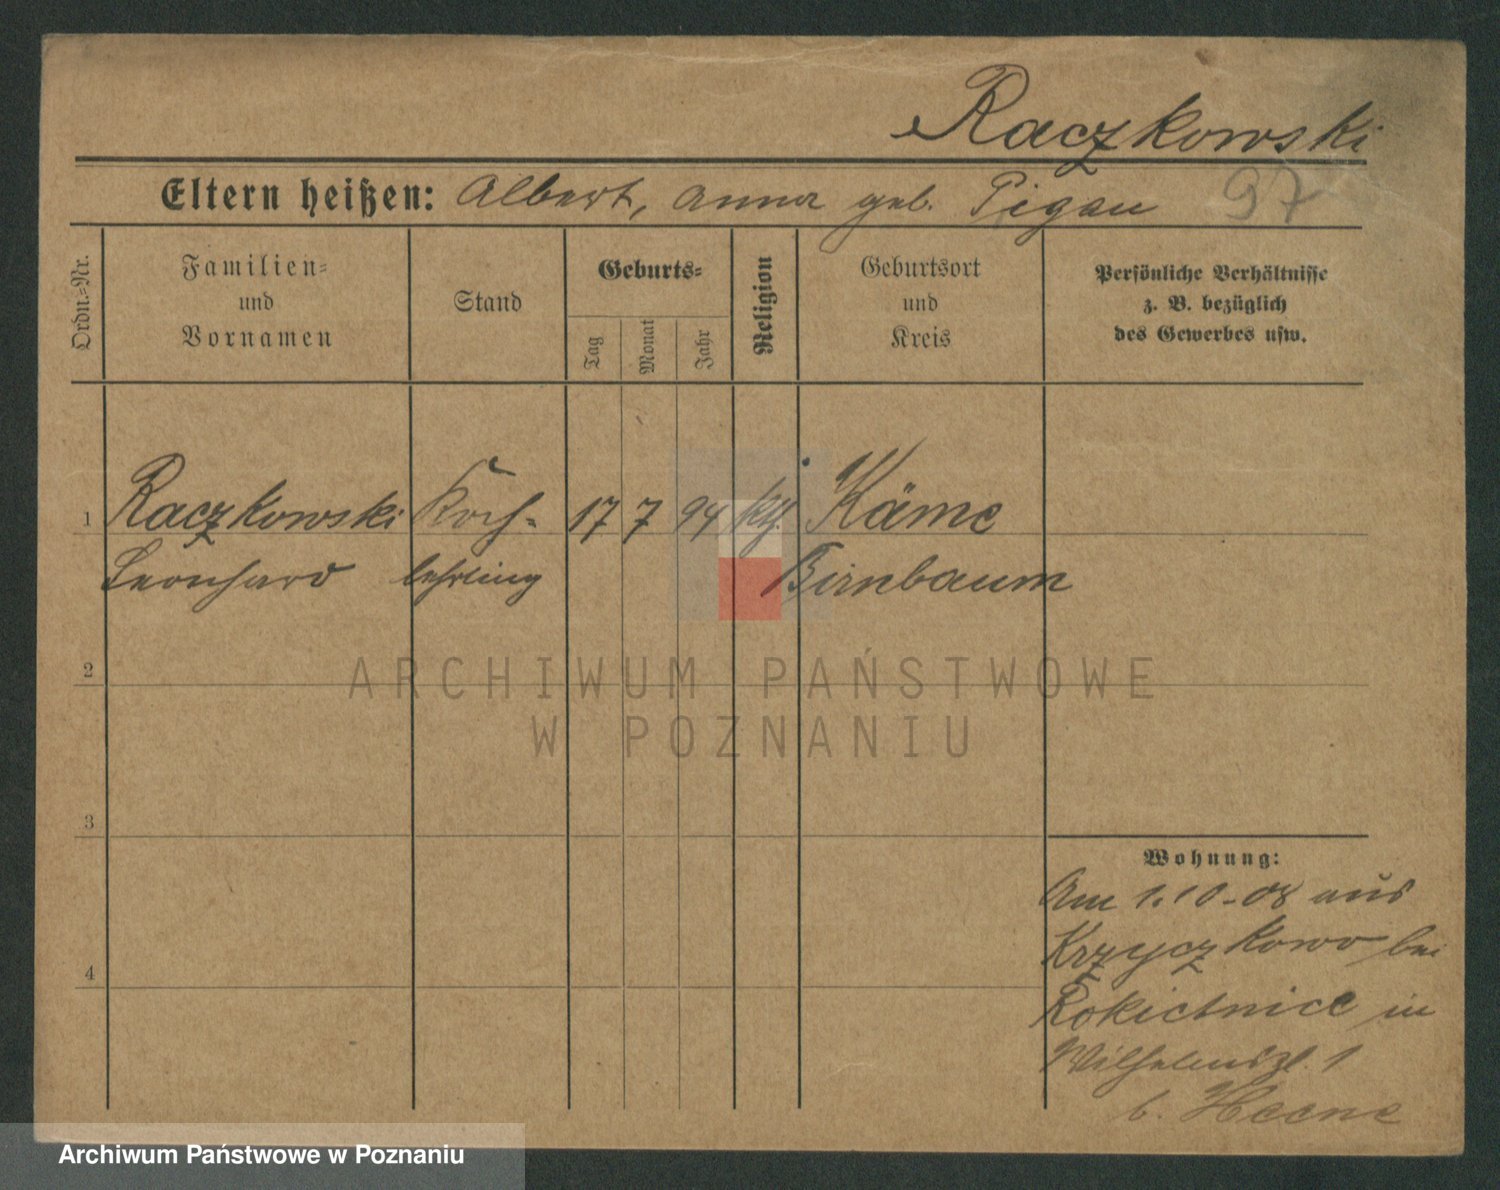 Raczkowski
Eltern heißen: Albert, Anna geb. Pigau 97
Ordn.-Nr.
Familien-
und
Vornamen
Stand
Geburts-
Tag
Monat
Jahr
Religion
Geburtsort
und
Kreis
Persönliche Verhältnisse
z. B. bezüglich
des Gewerbes usw.
1 Raczkowski Koch- 17 7 94 kth. Käme
Leonhard lehrling Birnbaum
2
3
4
Wohnung:
Am 1.10.08 aus
Krzyczkowo bei
Rokietnice in
Wilhelmspl. 1
b. Heene
ARCHIWUM PAŃSTWOWE
W POZNANIU
Archiwum Państwowe w Poznaniu